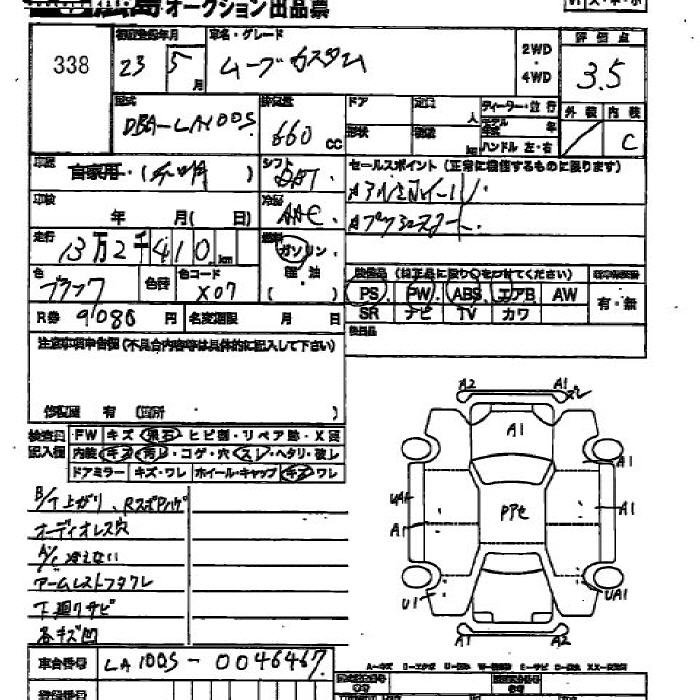 広島オークション出品票
338
初度登録年月
23年5月
車名・グレード
ムーブカスタム
2WD・4WD
評価点
3.5
型式
DBA-LA100S
排気量
660cc
ドア
定員 人
形状
積載 kg
ディーラー・並行
モデル年式 年
ハンドル 左・右
外装
内装
C
車歴
自家用・( )
シフト
セールスポイント(正常に機能するものに限ります)
車検
年 月( 日)
冷房
AAC
走行
13万2千410km
燃料
ガソリン
軽・油
( )
色
ブラック
色替
色コード
X07
装備品(純正品に限り○をつけてください)
PS PW ABS エアB AW
SR ナビ TV カワ
有・無
R券 9080円
名変期限 月 日
後日品
注意事項申告欄(不具合内容等は具体的に記入して下さい)
修復歴 有 (箇所 )
検査員記入欄
FW キズ・飛石・ヒビ割・リペア跡・X
内装 キズ・汚レ・コゲ・穴・スレ・ヘタリ・破レ
ドアミラー キズ・ワレ ホイール・キャップ キズ・ワレ
オーディオレス穴
A/C冷えない
アームレストフタワレ
下廻りサビ
各キズ凹
A2 A1
A1
A1
UA1
A1
A1
PPセ
U1
UA1
A1 A2
車台番号 LA100S-0046467